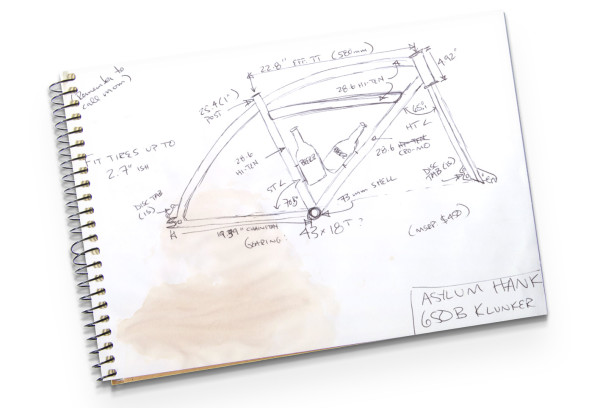 (Remember to
call mom)
22.8" EFF TT (580mm)
4.92"
25.4 (1")
POST
28.6 HI-TEN
65°
HT∠
FIT TIRES UP TO
2.7" ISH
28.6
HI-TEN
BEER
BEER
28.6 HI-TEN
CRO-MO
ST∠
70.5°
DISC TAB
(IS)
DISC
TAB (IS)
73mm SHELL
GEARING:
43 x 18T ?
(MSRP $450)
ASYLUM HANK
650B KLUNKER